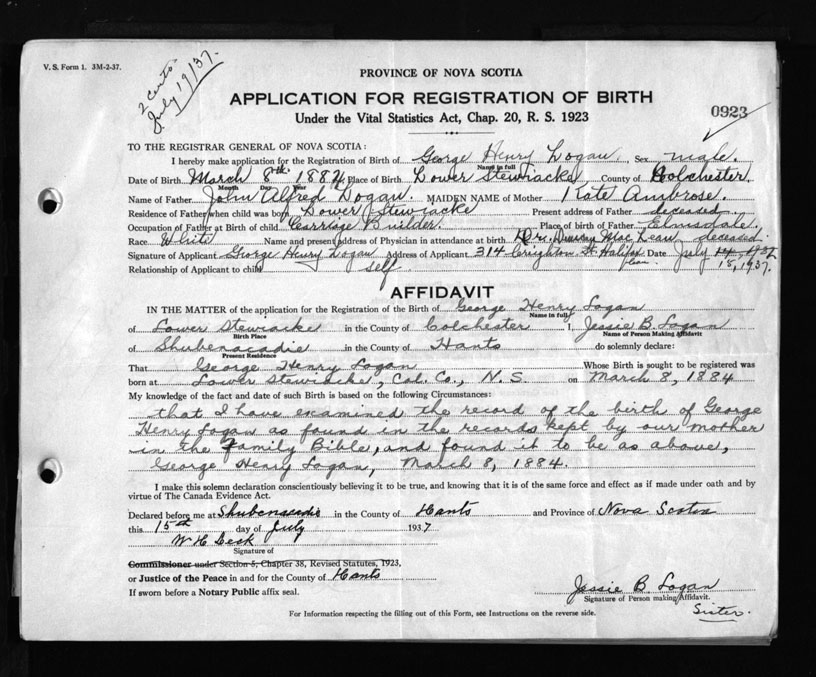 V. S. Form 1. 3M-2-37.
2 Certs.
July 19/37.
PROVINCE OF NOVA SCOTIA
APPLICATION FOR REGISTRATION OF BIRTH
0923
Under the Vital Statistics Act, Chap. 20, R. S. 1923
TO THE REGISTRAR GENERAL OF NOVA SCOTIA:
I hereby make application for the Registration of Birth of George Henry Logan, Sex male.
Name in full
Date of Birth March 8th 1884 Place of Birth Lower Stewiacke County of Colchester.
Month Day Year
Name of Father John Alfred Logan. MAIDEN NAME of Mother Kate Ambrose.
Residence of Father when child was born Lower Stewiacke Present address of Father deceased
Occupation of Father at Birth of child Carriage Builder. Place of birth of Father Elmsdale.
Race White Name and present address of Physician in attendance at birth Dr. MacLean, deceased.
Signature of Applicant George Henry Logan Address of Applicant 314 Creighton St. Halifax Date July
18, 1937.
Relationship of Applicant to child self.
AFFIDAVIT
IN THE MATTER of the application for the Registration of the Birth of George Henry Logan
Name in full
of Lower Stewiacke in the County of Colchester I, Jessie B. Logan
Birth Place Name of Person Making Affidavit
of Shubenacadie in the County of Hants do solemnly declare:
Present Residence
That George Henry Logan Whose Birth is sought to be registered was
born at Lower Stewiacke, Col. Co., N. S. on March 8, 1884
My knowledge of the fact and date of such Birth is based on the following Circumstances:
that I have examined the record of the birth of George
Henry Logan as found in the records kept by our mother
in the family Bible, and found it to be as above,
George Henry Logan, March 8, 1884.
I make this solemn declaration conscientiously believing it to be true, and knowing that it is of the same force and effect as if made under oath and by
virtue of The Canada Evidence Act.
Declared before me at Shubenacadie in the County of Hants and Province of Nova Scotia
this 15th day of July 1937
W H Leck
Signature of
Commissioner under Section 5, Chapter 38, Revised Statutes, 1923,
or Justice of the Peace in and for the County of Hants
If sworn before a Notary Public affix seal.
Jessie B. Logan
Signature of Person making Affidavit.
Sister.
For Information respecting the filling out of this Form, see Instructions on the reverse side.